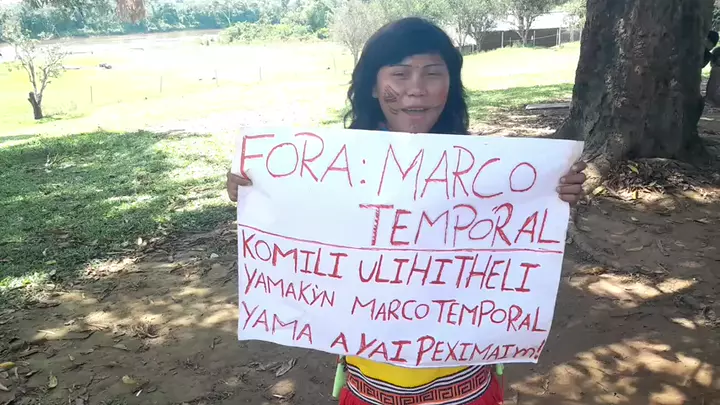 FORA: MARCO
TEMPORAL
KOMILI ULIHITHELI
YAMAKỲN MARCO TEMPORAL
YAMA AYAI PEXIMAIm!